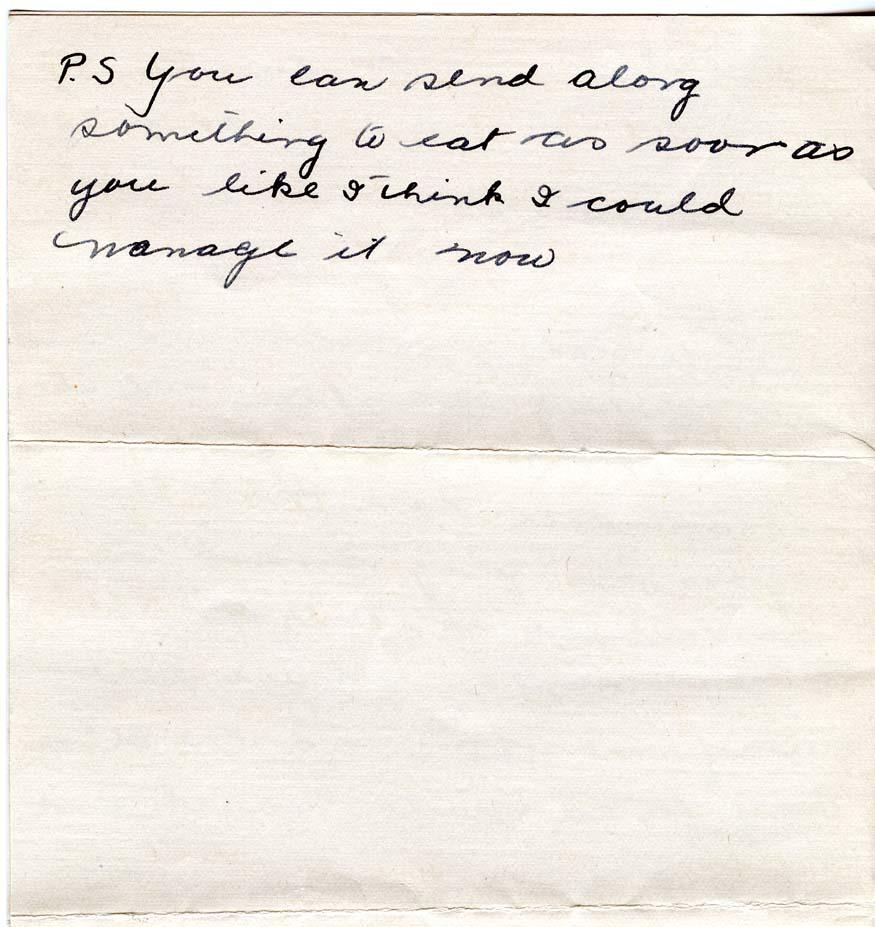 P.S You can send along
something to eat as soon as
you like I think I could
manage it now